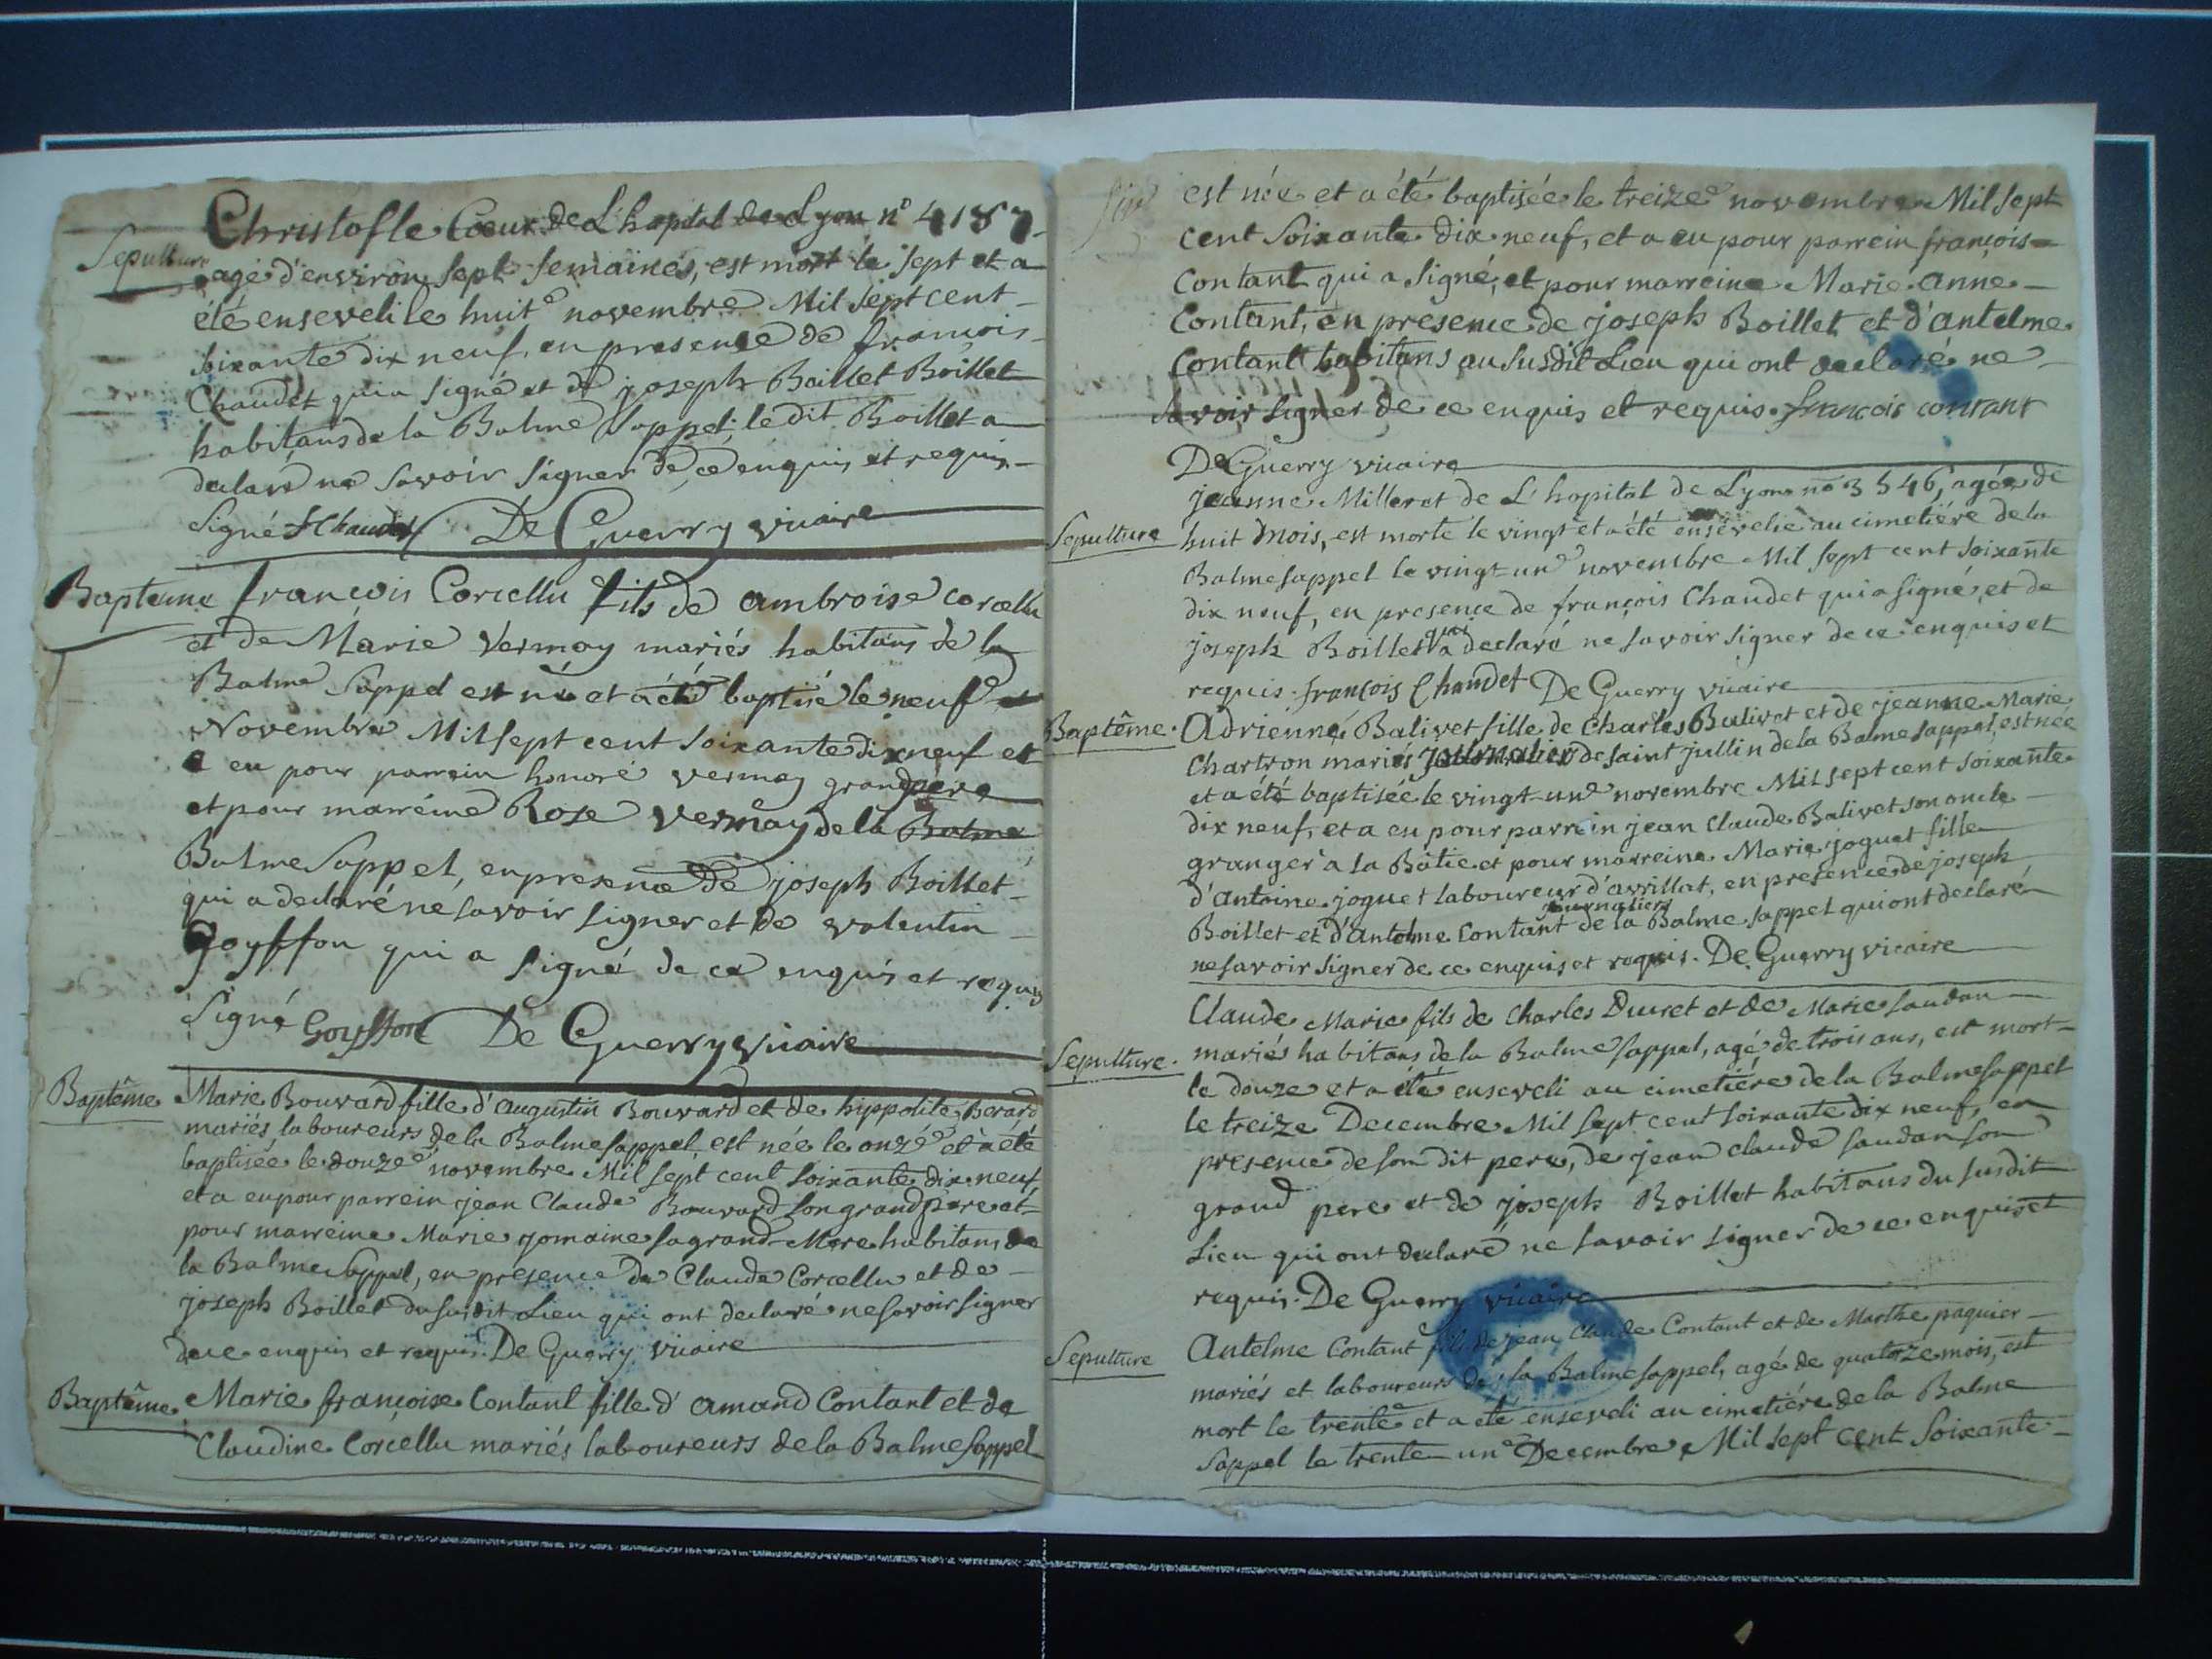 Christofle Cœur de L'hopital de Lyon n° 4187
Sepulture
agé d'environ sept semaines, est mort le sept et a
été enseveli le huit novembre Mil sept cent
soixante dix neuf, en presence de françois
Chaudet qui a signé et de joseph Boillet Boillet
habitans de la Balme Sappel; le dit Boillet a
declaré ne savoir signer de ce enquis et requis
signé f Chaudet De Guerry vicaire
Bapteme françois Corcellu fils de ambroise corcellu
et de Marie Vermay mariés habitans de la
Balme Sappel est né et a été baptisé le neuf
Novembre Mil sept cent soixante dix neuf et
a eu pour parrein honoré vermay grand père
et pour marréine Rose vermay de la Balme
Balme Sappel, en presence de joseph Boillet
qui a declaré ne savoir signer et de valentin
Goyffon qui a signé de ce enquis et requis
Signé Goyffon De Guerry vicaire
Baptême Marie Bouvard fille d'augustin Bouvard et de hippolite Berard
mariés laboureurs de la Balme sappel, est née le onze et a été
baptisée le douze novembre Mil sept cent soixante dix neuf
et a eu pour parrein jean Claude Bouvard son grand pere et
pour marreine Marie jomaine sa grand Mere habitans de
la Balme Sappel, en présence de Claude Corcellu et de
joseph Boillet du susdit Lieu qui ont declaré ne savoir signer
de ce enquis et requis. De Guerry vicaire
Baptême Marie françoise Contant fille d'amand Contant et de
Claudine Corcellu mariés laboureurs de la Balme Sappel
est née et a été baptisée le treize novembre Mil sept
cent soixante dix neuf, et a eu pour parrein françois
Contant qui a signé, et pour marreine Marie Anne
Contant, en presence de joseph Boillet et d'antelme
Contant habitans au susdit Lieu qui ont declaré ne
savoir signer de ce enquis et requis. francois contant
De Guerry vicaire
jeanne Milleret de L'hopital de Lyon n° 3546, agée de
Sepulture huit mois, est morte le vingt et a été ensevelie au cimetiére de la
Balme sappel le vingt un novembre Mil sept cent soixante
dix neuf, en presence de françois Chaudet qui a signé, et de
qui
joseph Boillet a declaré ne savoir signer de ce enquis et
requis. françois Chaudet De Guerry vicaire
Baptême. Adrienne Balivet fille de Charles Balivet et de jeanne Marie
Chartron mariés journaliers de saint jullin de la Balme sappel, est née
et a été baptisée le vingt-un novembre Mil sept cent soixante
dix neuf, et a eu pour parrein jean Claude Balivet son oncle
granger a la Batie et pour marreine Marie joguet fille
d'Antoine joguet laboureur d'avrillat, en presence de joseph
journaliers
Boillet et d'Antelme Contant de la Balme sappel qui ont declaré
ne savoir signer de ce enquis et requis. De Guerry vicaire
Claude Marie fils de Charles Duret et de Marie Saudan
Sepulture. mariés habitans de la Balme sappel, agé de trois ans, est mort
le douze et a été enseveli au cimetiére de la Balme sappel
le treize Decembre Mil sept cent soixante dix neuf, en
presence de son dit pere, de jean claude saudan son
grand pere et de joseph Boillet habitans du susdit
Lieu qui ont declaré ne savoir signer de ce enquis et
requis. De Guerry vicaire
Antelme Contant fils de jean Claude Contant et de Marthe paquier
Sepulture
mariés et laboureurs de la Balme sappel, agé de quatorze mois, est
mort le trente et a été enseveli au cimetiére de la Balme
sappel le trente un Decembre Mil sept cent soixante